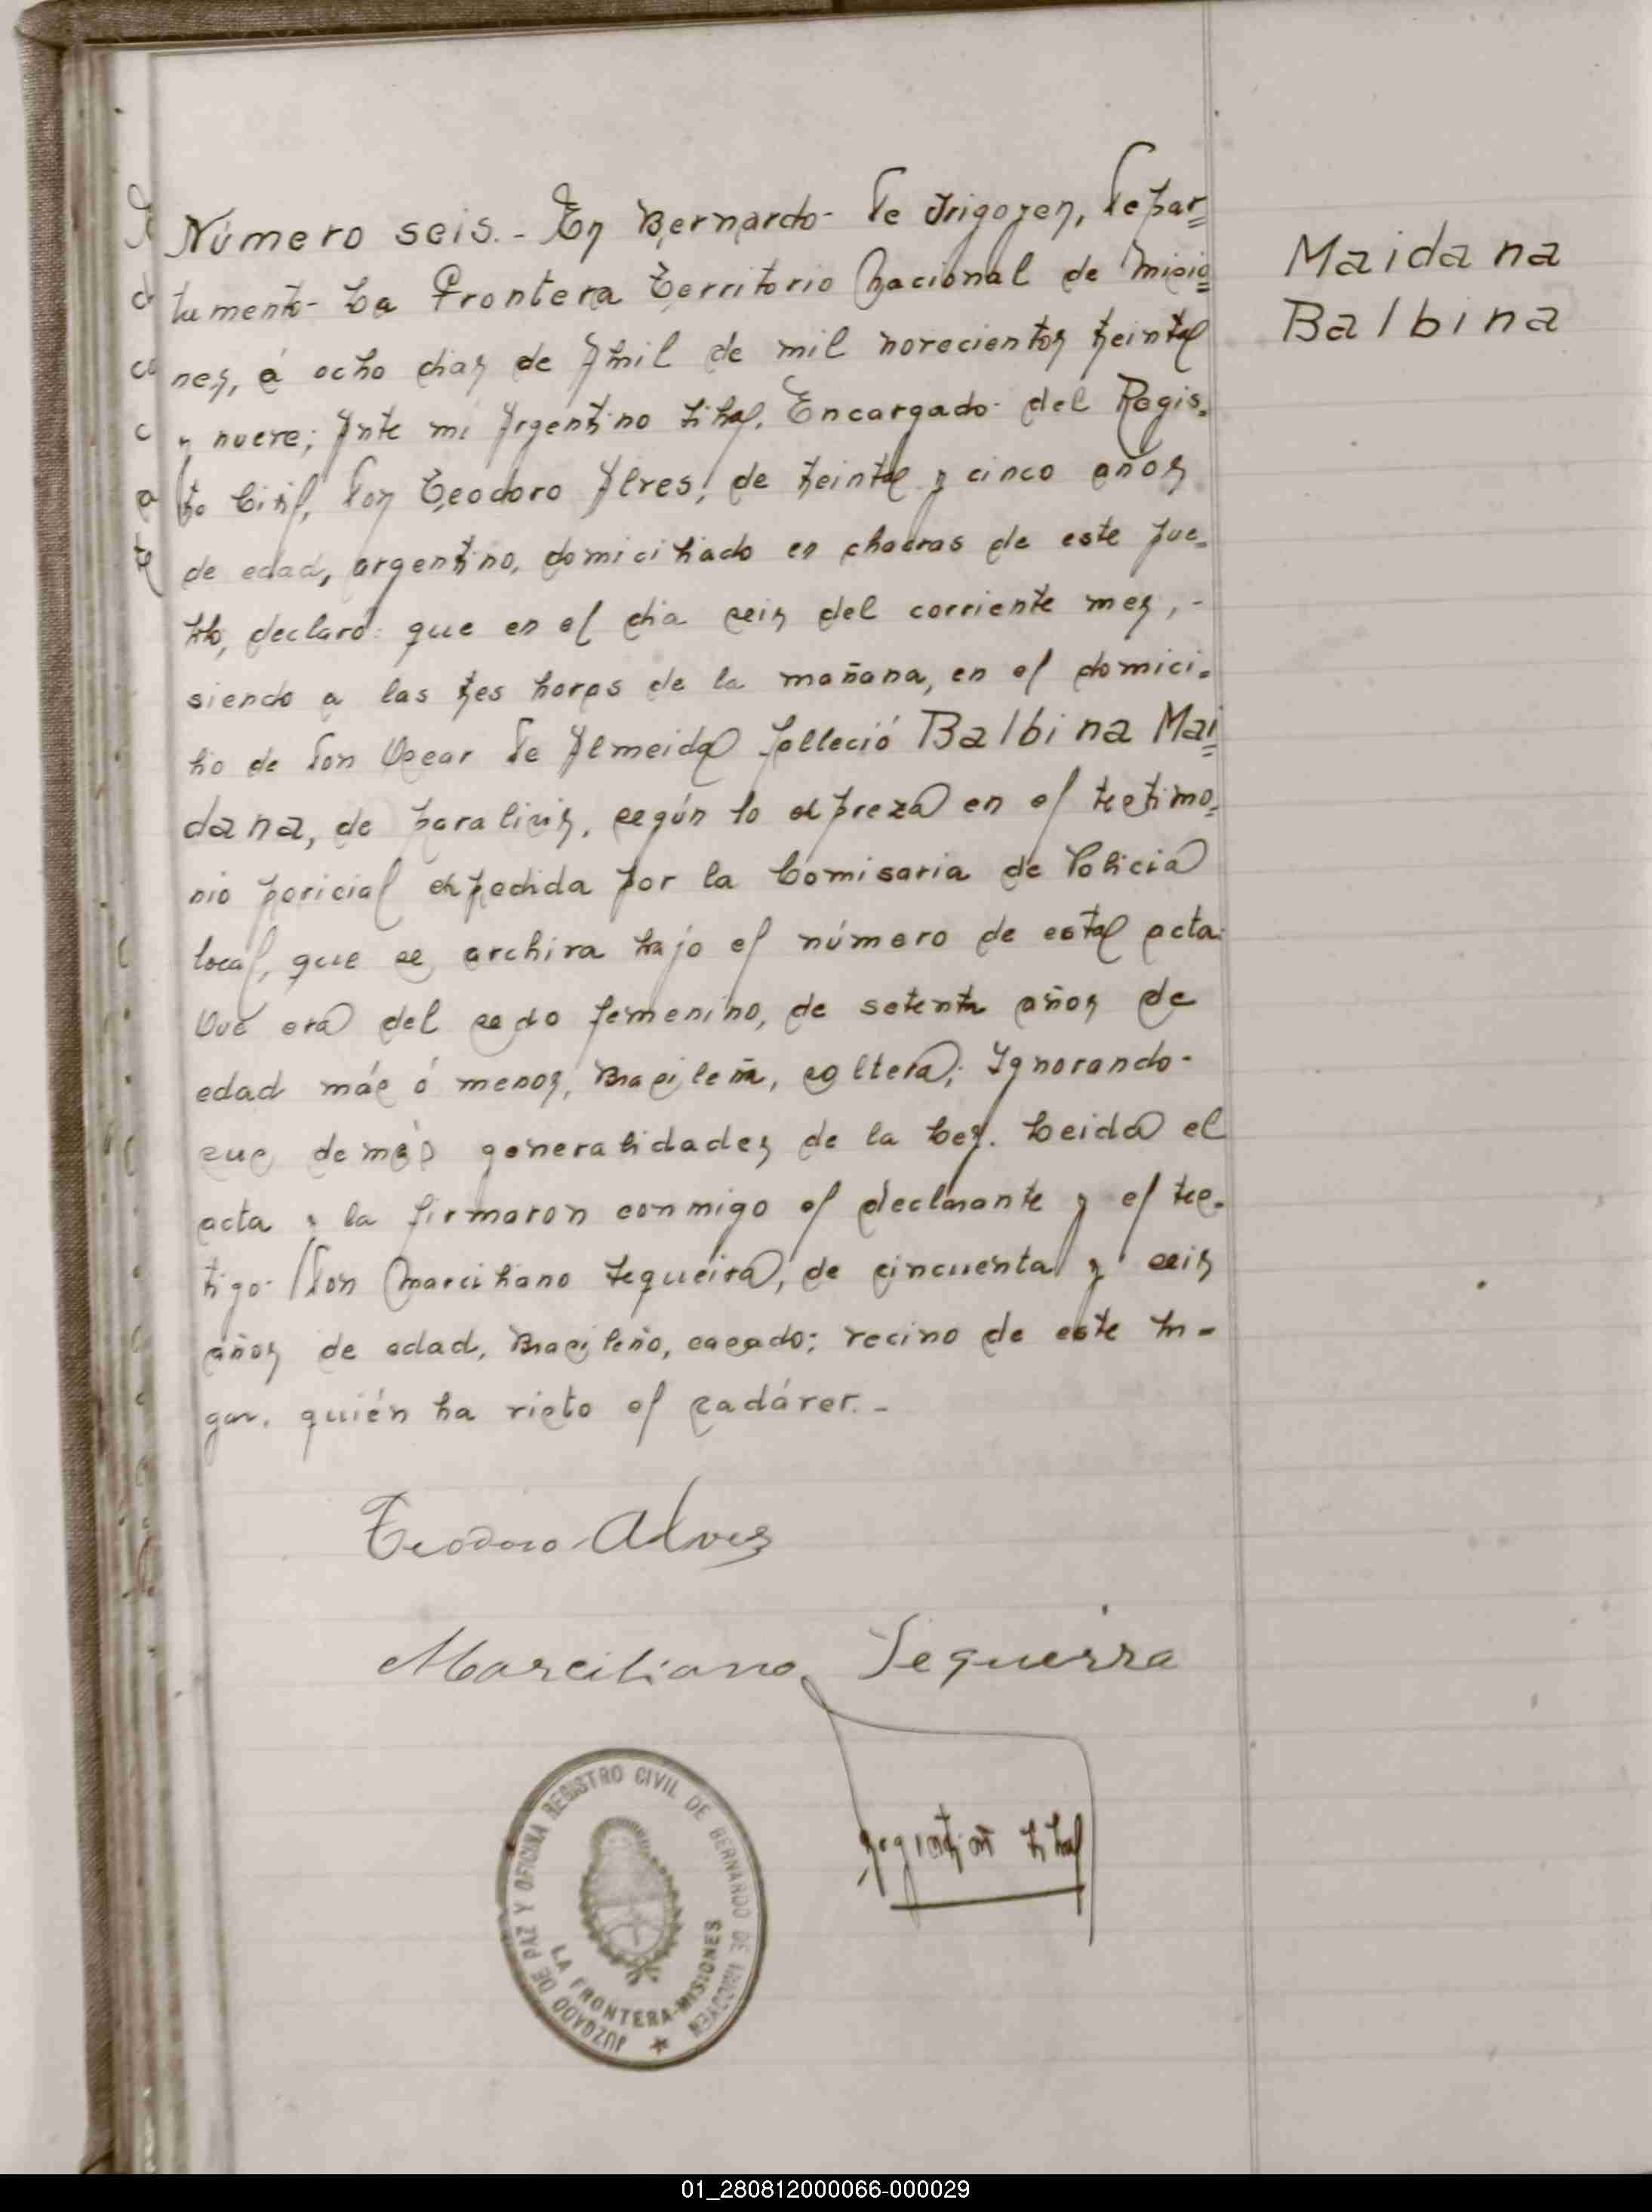 Número seis.- En Bernardo de Irigoyen, Depar=
Maidana
Balbina
tamento La Frontera Territorio Nacional de Misio=
nes, á ocho dias de Abril de mil novecientos treinta
y nueve; Ante mi Argentino Encargado del Regis-
tro Civil, Don Teodoro Alves, de treinta y cinco años
de edad, argentino, domiciliado en chacras de este pue-
blo, declaró: que en el dia seis del corriente mes,-
siendo a las tres horas de la mañana, en el domici-
lio de Don Oscar de Almeida falleció Balbina Mai=
dana, de paralisis, según lo expreza en el testimo=
nio pericial expedida por la Comisaria de Policia
local, que se archiva bajo el número de esta acta.
Que era del sexo femenino, de setenta años de
edad más ó menos, Brasileña, soltera; Ignorando-
sus demás generalidades de la Ley. Leida el
acta y la firmaron conmigo el declarante y el tes-
tigo Don Marciliano Sequeira, de cincuenta y seis
años de edad, Brasileño, casado; vecino de este lu-
gar, quién ha visto el cadáver.-
Teodoro Alves
Marciliano Sequeira
JUZGADO DE PAZ Y OFICINA REGISTRO CIVIL DE BERNARDO DE IRIGOYEN
LA FRONTERA-MISIONES
01_280812000066-000029